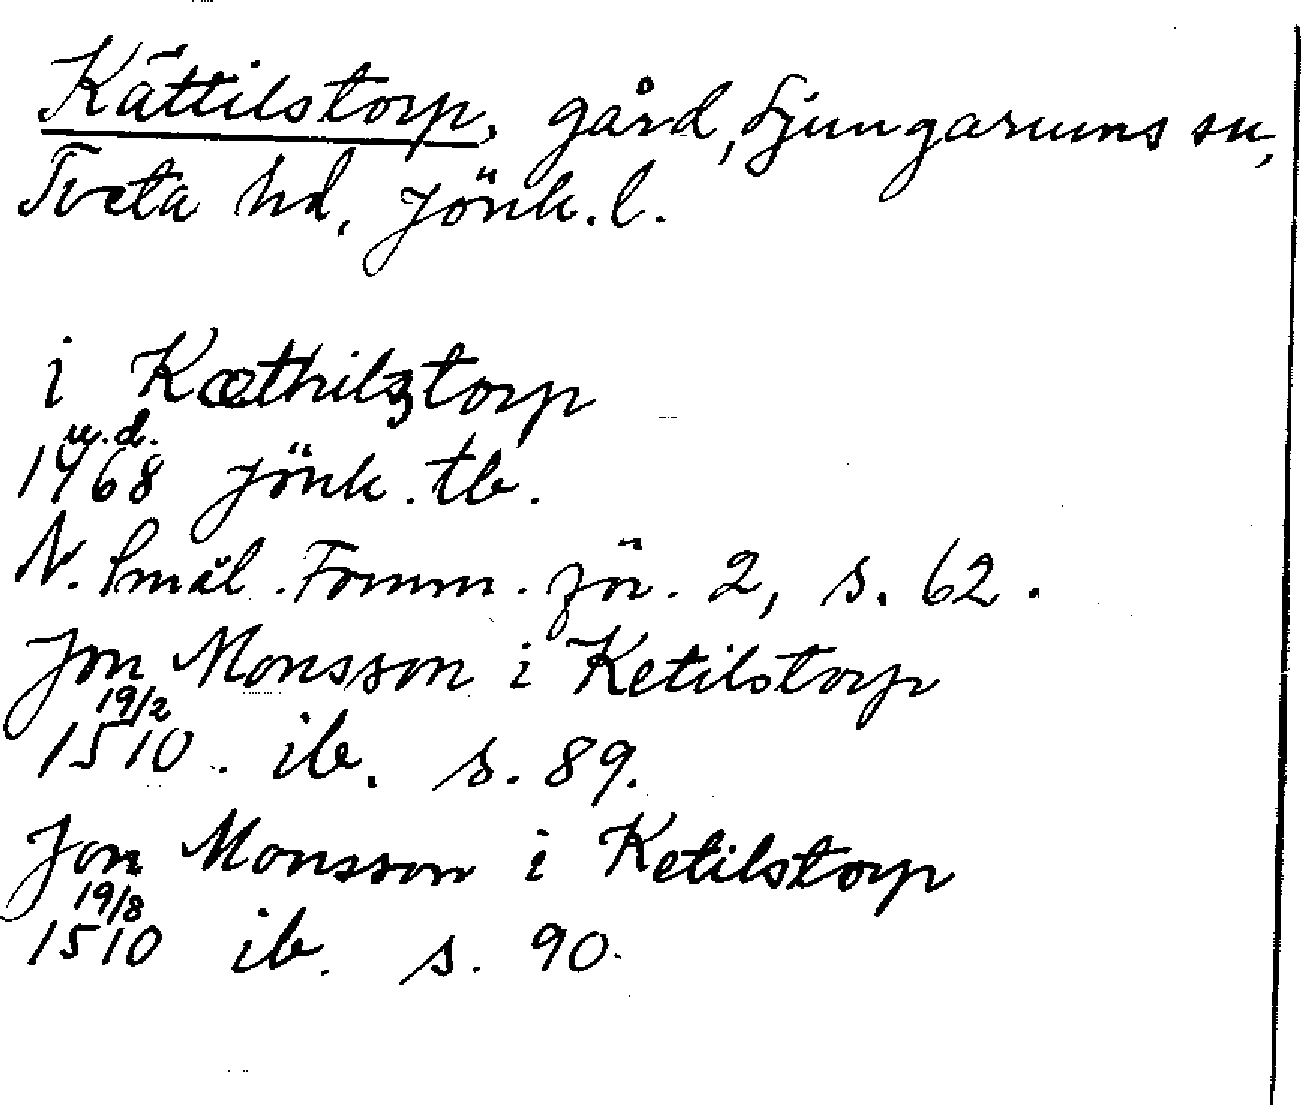 Kättilstorp, gård, Ljungarums sn,
Tveta hd, Jönk. l.
i Kæthilsztorp
u.d.
1468 Jönk. tb.
N. Smål. Fornm. för. 2, s. 62.
Jon Monsson i Ketilstorp
19/2
1510. ib. s. 89.
Jon Monsson i Ketilstorp
19/8
1510 ib. s. 90.